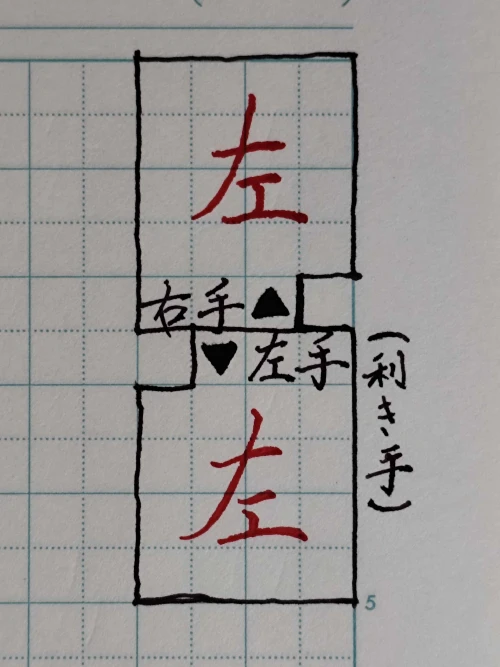 左
右手▲
▼左手
(利き手)
左
5